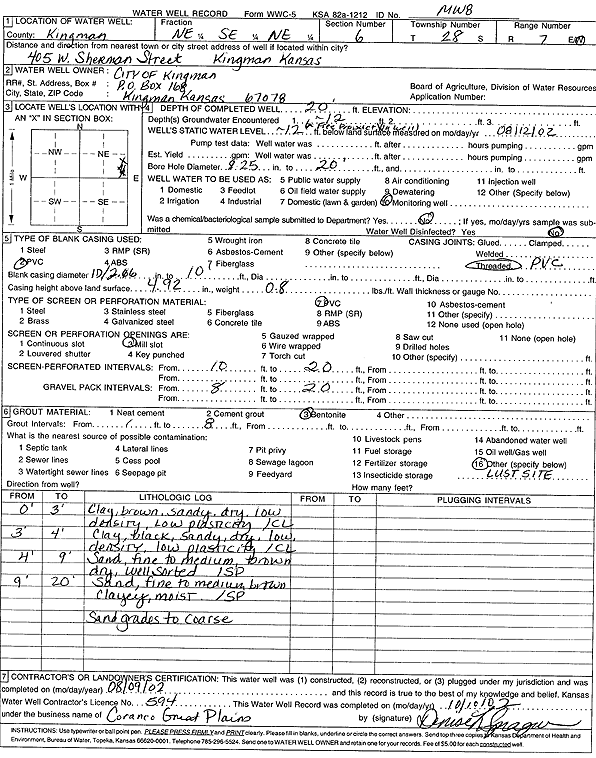 WATER WELL RECORD Form WWC-5 KSA 82a-1212 ID No. MW8
1 LOCATION OF WATER WELL: Fraction Section Number Township Number Range Number
County: Kingman NE ¼ SE ¼ NE ¼ 6 T 28 S R 7 E/W
Distance and direction from nearest town or city street address of well if located within city?
405 W. Sherman Street Kingman Kansas
2 WATER WELL OWNER: City of Kingman
RR#, St. Address, Box #: P.O. Box 168 Board of Agriculture, Division of Water Resources
City, State, ZIP Code: Kingman Kansas 67078 Application Number:
3 LOCATE WELL'S LOCATION WITH AN "X" IN SECTION BOX:
N
NW NE
W E
SW SE
S
1 Mile
4 DEPTH OF COMPLETED WELL 20' ft. ELEVATION:
Depth(s) Groundwater Encountered 1. ~12 ft. 2. ft. 3. ft.
WELL'S STATIC WATER LEVEL ~12 ft. below land surface measured on mo/day/yr 08/12/02
Pump test data: Well water was ft. after hours pumping gpm
Est. Yield gpm: Well water was ft. after hours pumping gpm
Bore Hole Diameter 8.25 in. to 20' ft., and in. to ft.
WELL WATER TO BE USED AS: 5 Public water supply 8 Air conditioning 11 Injection well
1 Domestic 3 Feedlot 6 Oil field water supply 9 Dewatering 12 Other (Specify below)
2 Irrigation 4 Industrial 7 Domestic (lawn & garden) 10 Monitoring well
Was a chemical/bacteriological sample submitted to Department? Yes No ; If yes, mo/day/yrs sample was submitted
Water Well Disinfected? Yes No
5 TYPE OF BLANK CASING USED: 5 Wrought iron 8 Concrete tile CASING JOINTS: Glued Clamped
1 Steel 3 RMP (SR) 6 Asbestos-Cement 9 Other (specify below) Welded
2 PVC 4 ABS 7 Fiberglass Threaded PVC
Blank casing diameter ID/2.06 in. to 10 ft., Dia in. to ft., Dia in. to ft.
Casing height above land surface 4.92 in., weight 0.8 lbs./ft. Wall thickness or gauge No.
TYPE OF SCREEN OR PERFORATION MATERIAL: 7 PVC 10 Asbestos-cement
1 Steel 3 Stainless steel 5 Fiberglass 8 RMP (SR) 11 Other (specify)
2 Brass 4 Galvanized steel 6 Concrete tile 9 ABS 12 None used (open hole)
SCREEN OR PERFORATION OPENINGS ARE: 5 Gauzed wrapped 8 Saw cut 11 None (open hole)
1 Continuous slot 3 Mill slot 6 Wire wrapped 9 Drilled holes
2 Louvered shutter 4 Key punched 7 Torch cut 10 Other (specify)
SCREEN-PERFORATED INTERVALS: From 10 ft. to 20 ft., From ft. to ft.
From ft. to ft., From ft. to ft.
GRAVEL PACK INTERVALS: From 8 ft. to 20 ft., From ft. to ft.
From ft. to ft., From ft. to ft.
6 GROUT MATERIAL: 1 Neat cement 2 Cement grout 3 Bentonite 4 Other
Grout Intervals: From 1 ft. to 8 ft., From ft. to ft., From ft. to ft.
What is the nearest source of possible contamination: 10 Livestock pens 14 Abandoned water well
1 Septic tank 4 Lateral lines 7 Pit privy 11 Fuel storage 15 Oil well/Gas well
2 Sewer lines 5 Cess pool 8 Sewage lagoon 12 Fertilizer storage 16 Other (specify below)
3 Watertight sewer lines 6 Seepage pit 9 Feedyard 13 Insecticide storage LUST SITE
Direction from well? How many feet?
FROM TO LITHOLOGIC LOG FROM TO PLUGGING INTERVALS
0' 3' Clay, brown, sandy, dry, low
density, low plasticity /CL
3' 4' Clay, black, sandy, dry, low
density, low plasticity /CL
4' 9' Sand, fine to medium, brown
dry, well sorted /SP
9' 20' Sand, fine to medium, brown
Clayey, moist /SP
Sand grades to coarse
7 CONTRACTOR'S OR LANDOWNER'S CERTIFICATION: This water well was (1) constructed, (2) reconstructed, or (3) plugged under my jurisdiction and was
completed on (mo/day/year) 08/09/02 and this record is true to the best of my knowledge and belief. Kansas
Water Well Contractor's Licence No. 594 This Water Well Record was completed on (mo/day/yr)
under the business name of Coranco Great Plains by (signature)
INSTRUCTIONS: Use typewriter or ball point pen. PLEASE PRESS FIRMLY and PRINT clearly. Please fill in blanks, underline or circle the correct answers. Send top three copies to Kansas Department of Health and
Environment, Bureau of Water, Topeka, Kansas 66620-0001. Telephone 785-296-5524. Send one to WATER WELL OWNER and retain one for your records. Fee of $5.00 for each constructed well.